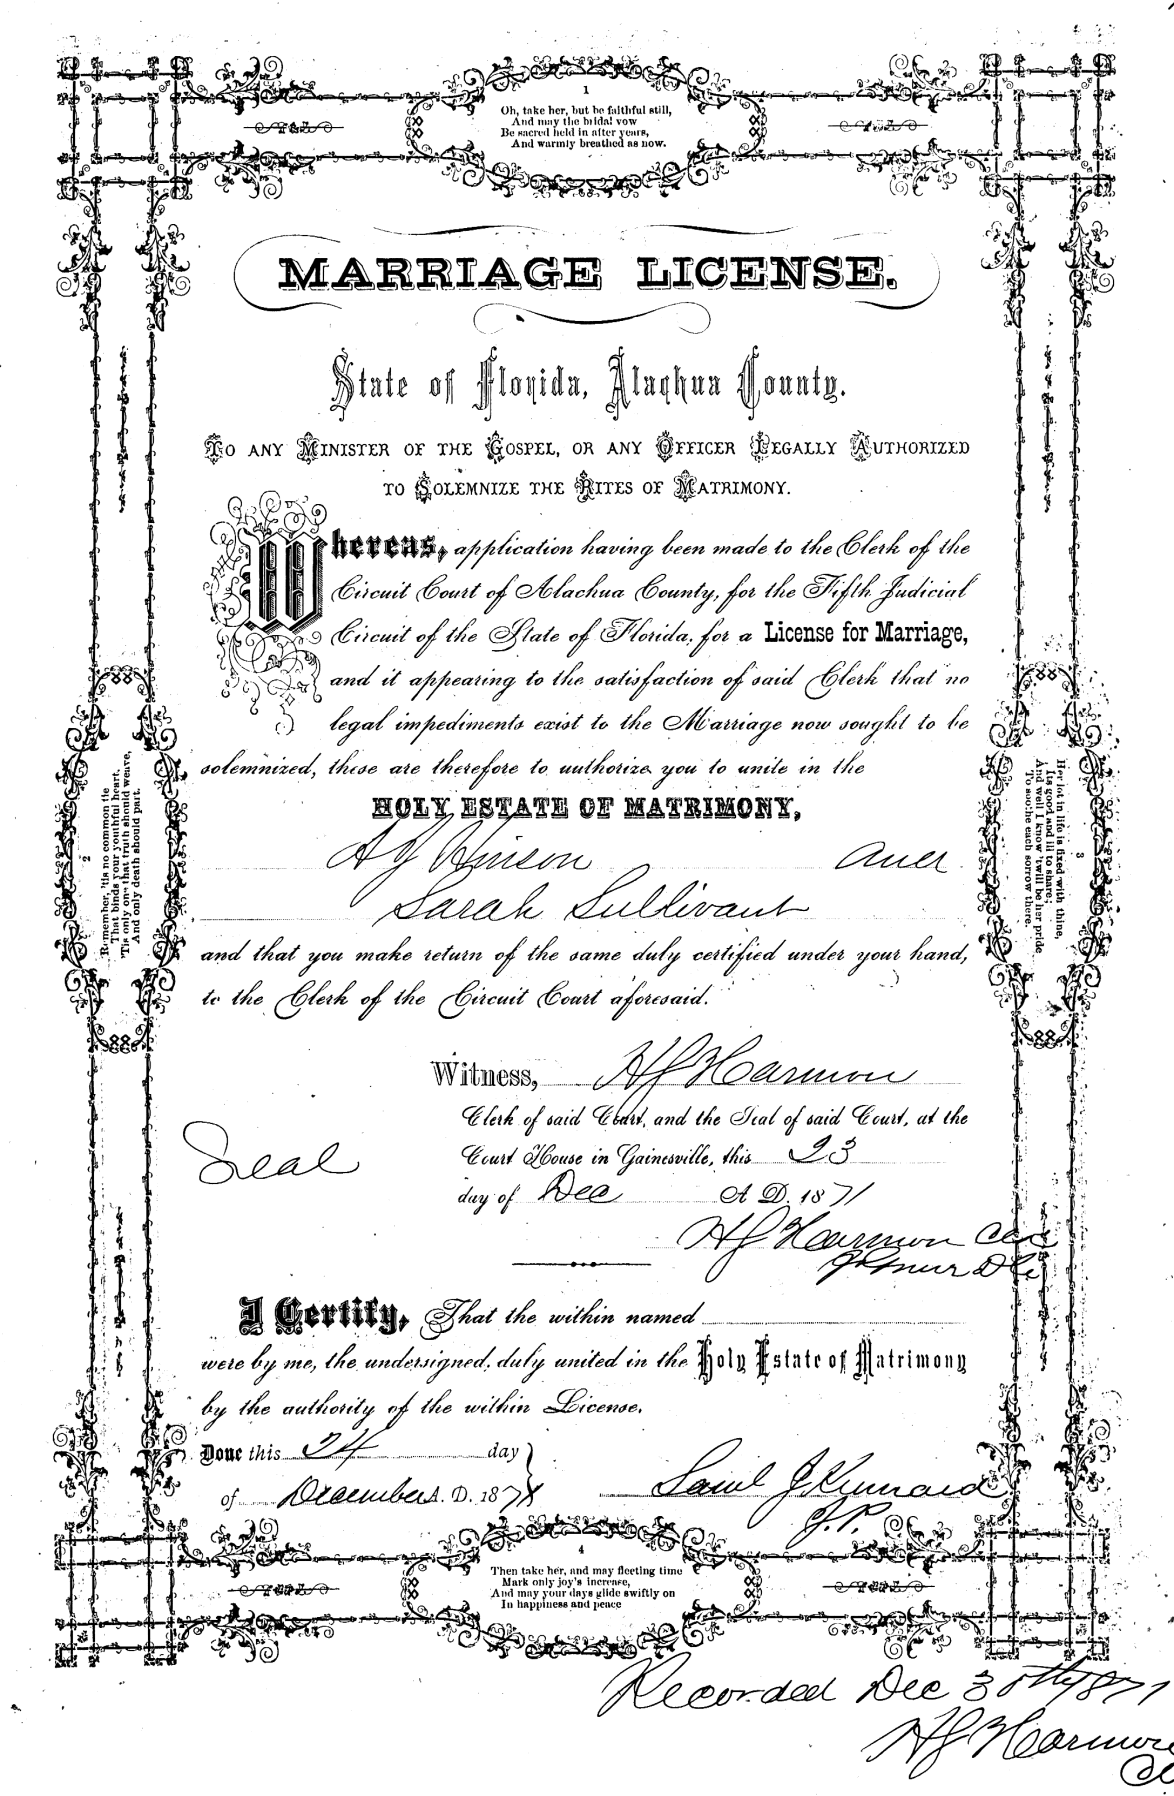 1
Oh, take her, but be faithful still,
And may the bridal vow
Be sacred held in after years,
And warmly breathed as now.
MARRIAGE LICENSE.
State of Florida, Alachua County.
TO ANY MINISTER OF THE GOSPEL, OR ANY OFFICER LEGALLY AUTHORIZED
TO SOLEMNIZE THE RITES OF MATRIMONY.
Whereas, application having been made to the Clerk of the
Circuit Court of Alachua County, for the Fifth Judicial
Circuit of the State of Florida, for a License for Marriage,
and it appearing to the satisfaction of said Clerk that no
legal impediments exist to the Marriage now sought to be
solemnized, these are therefore to authorize you to unite in the
HOLY ESTATE OF MATRIMONY,
Hinson
Sarah Sullivant
and that you make return of the same duly certified under your hand,
to the Clerk of the Circuit Court aforesaid.
Witness, HJ Harmon
Clerk of said Court, and the Seal of said Court, at the
Seal
Court House in Gainesville, this 23
day of Dec A D. 1871
HJ Harmon
I Certify, That the within named
were by me, the undersigned, duly united in the Holy Estate of Matrimony
by the authority of the within License.
Done this 24 day
of December A. D. 1871
Saml J Kennard
J.P.
2
Remember, 'tis no common tie
That binds your youthful heart,
'Tis only one that truth should weave,
And only death should part.
3
Her lot in life is fixed with thine,
Its good and ill to share;
And well I know 'twill be her pride
To soothe each sorrow there.
4
Then take her, and may fleeting time
Mark only joy's increase,
And may your days glide swiftly on
In happiness and peace
Recorded Dec 30th 1871
HJ Harmon